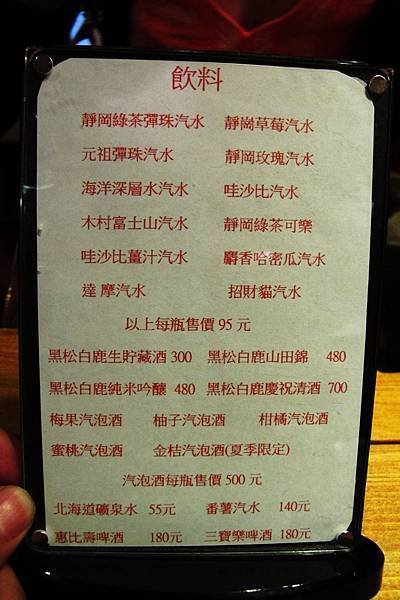 飲料
靜岡綠茶彈珠汽水 靜崗草莓汽水
元祖彈珠汽水 靜岡玫瑰汽水
海洋深層水汽水 哇沙比汽水
木村富士山汽水 靜岡綠茶可樂
哇沙比薑汁汽水 麝香哈密瓜汽水
達摩汽水 招財貓汽水
以上每瓶售價 95 元
黑松白鹿生貯藏酒 300 黑松白鹿山田錦 480
黑松白鹿純米吟釀 480 黑松白鹿慶祝清酒 700
梅果汽泡酒 柚子汽泡酒 柑橘汽泡酒
蜜桃汽泡酒 金桔汽泡酒(夏季限定)
汽泡酒每瓶售價 500 元
北海道礦泉水 55元 番薯汽水 140元
惠比壽啤酒 180元 三寶樂啤酒 180元